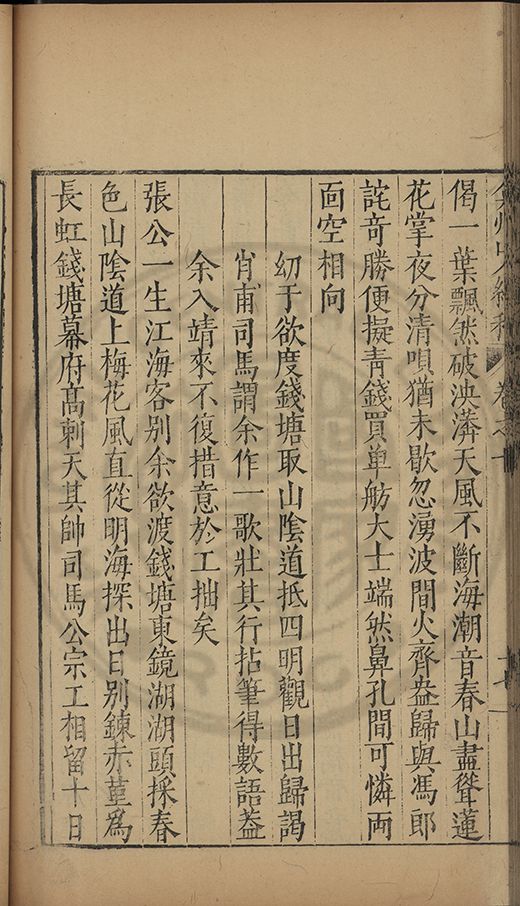 偈一葉飄然破泱漭天風不斷海潮音春山盡聳蓮
花掌夜分清唄猶未歇忽湧波間火齊盎歸與馮郎
詫奇勝便擬靑錢買单舫大士端然鼻孔間可憐两
面空相向
㓜于欲度錢塘取山陰道抵四明觀日出歸謁
肖甫司馬謂余作一歌壯其行拈筆得數語葢
余入靖來不復措意於工拙矣
張公一生江海客别余欲渡錢塘東鏡湖湖頭採春
色山陰道上梅花風直從明海探出日别鍊赤堇爲
長虹錢塘幕府髙刺天其帥司馬公宗工相留十日